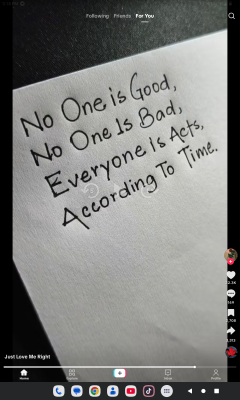 Following Friends For You
No One is Good,
No One Is Bad,
Everyone is Acts,
According To Time.
Just Love Me Right
Home
Profile